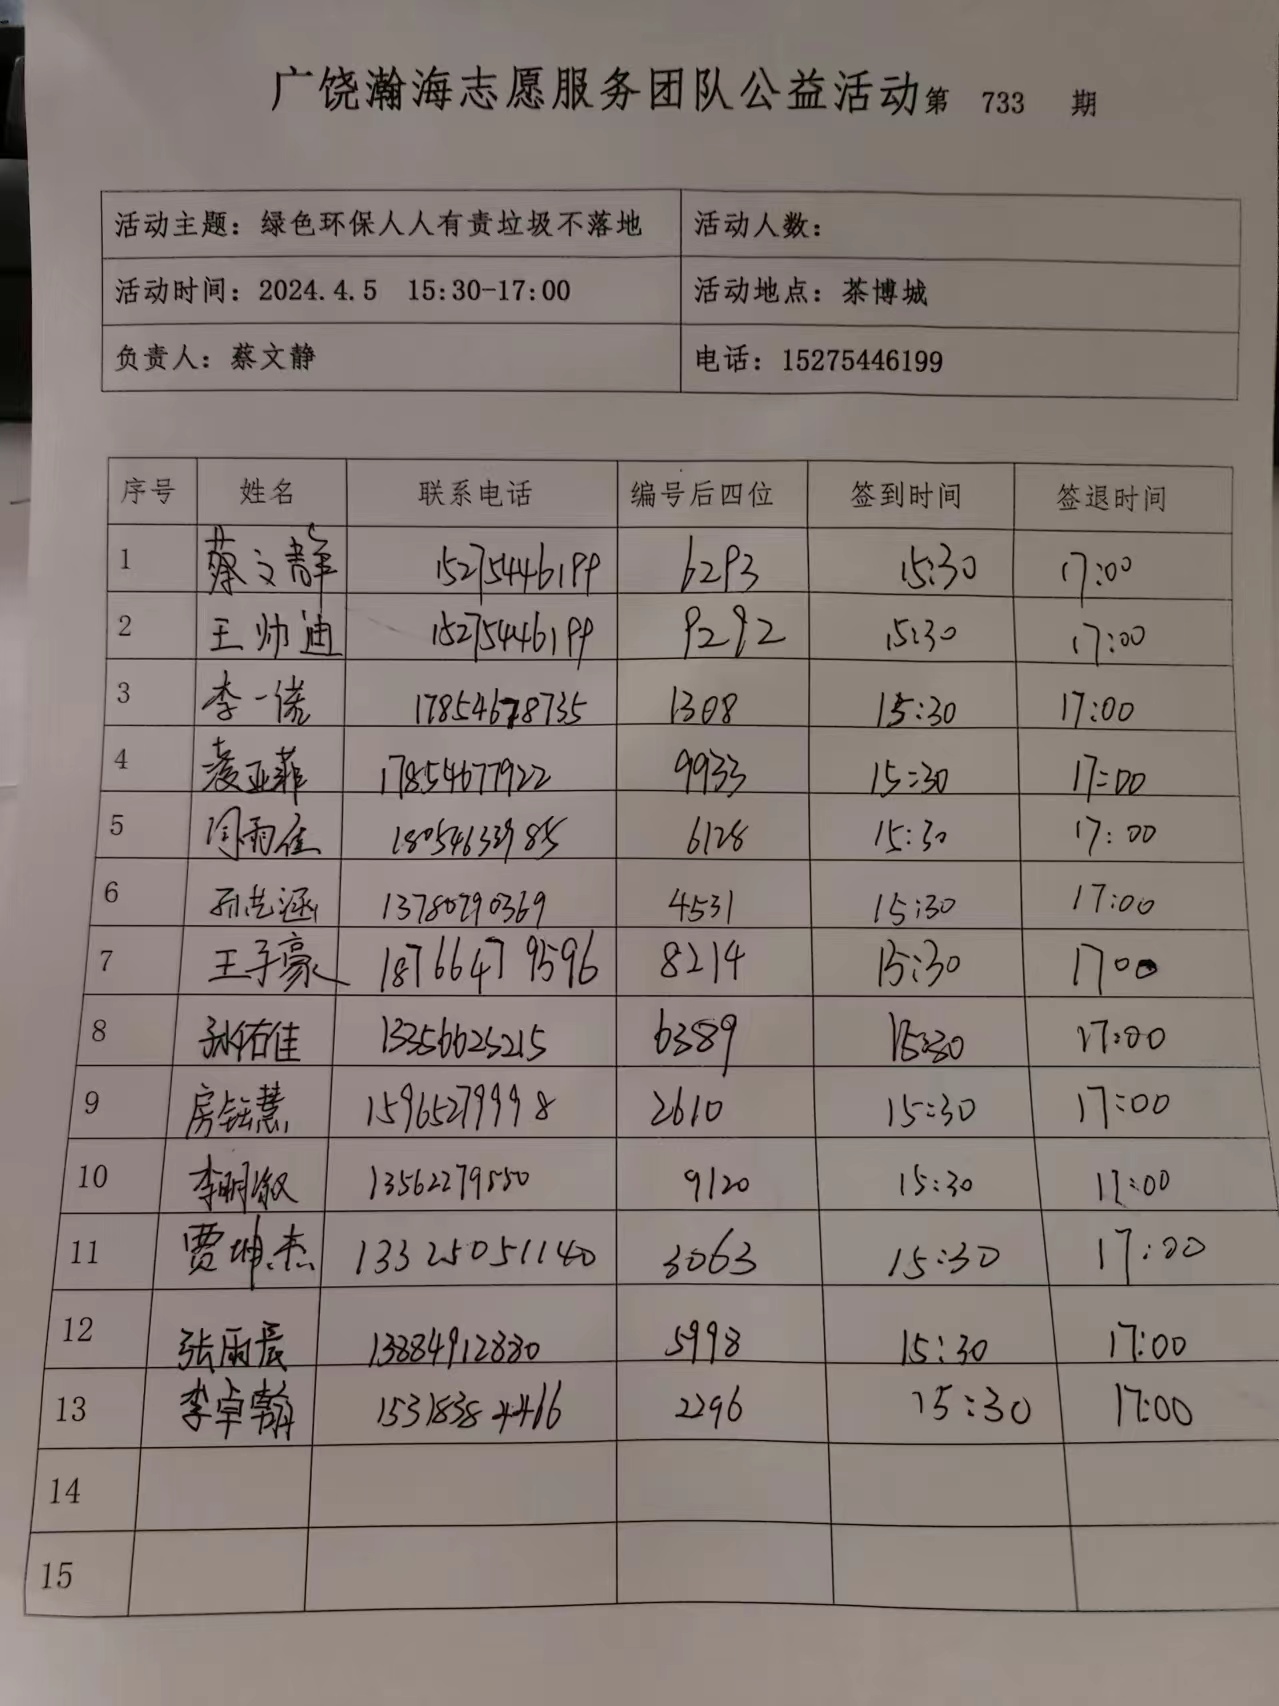 广饶瀚海志愿服务团队公益活动第 733 期
活动主题：绿色环保人人有责垃圾不落地 活动人数：
活动时间：2024.4.5 15:30-17:00 活动地点：茶博城
负责人：蔡文静 电话：15275446199
序号 姓名 联系电话 编号后四位 签到时间 签退时间
1 蔡文静 15275446199 6293 15:30 17:00
2 王帅迪 15275446199 9292 15:30 17:00
3 李一诺 17854678735 1308 15:30 17:00
4 亚菲 17854677922 9933 15:30 17:00
5 闫雨佳 18054633985 6128 15:30 17:00
6 孙艺涵 13780790369 4531 15:30 17:00
7 王子豪 18766479596 8214 15:30 17:00
8 孙佑佳 13356625215 6389 15:30 17:00
9 房钰慧 15965279998 2610 15:30 17:00
10 李明 13562279550 9120 15:30 17:00
11 贾坤杰 13325051140 3063 15:30 17:00
12 张雨辰 13884912880 5998 15:30 17:00
13 李卓翰 15318384466 2296 15:30 17:00
14
15